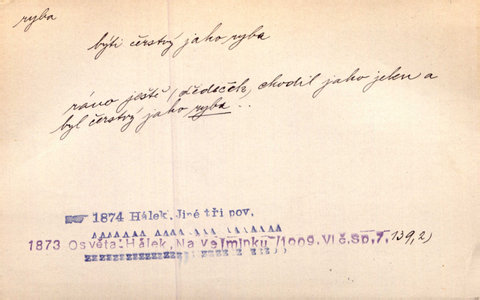 ryba
býti čerstvý jako ryba
ráno ještě (dědeček) chodil jako jelen a
byl čerstvý jako ryba . .
1874 Hálek, Jiné tři pov.
1873 Osvěta: Hálek, Na Vejminku /1009. VI č. Sp. 7, 139, 2)